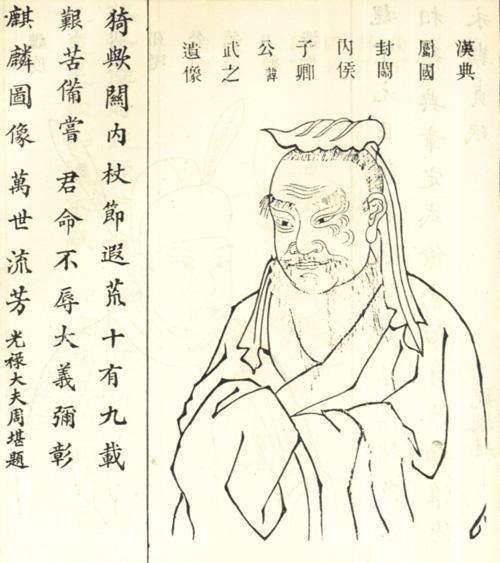 漢典
屬國
封關
內侯
子卿
公諱
武之
遺像
猗歟關內杖節遐荒十有九載
艱苦備嘗君命不辱大義彌彰
麒麟圖像萬世流芳光祿大夫周堪題